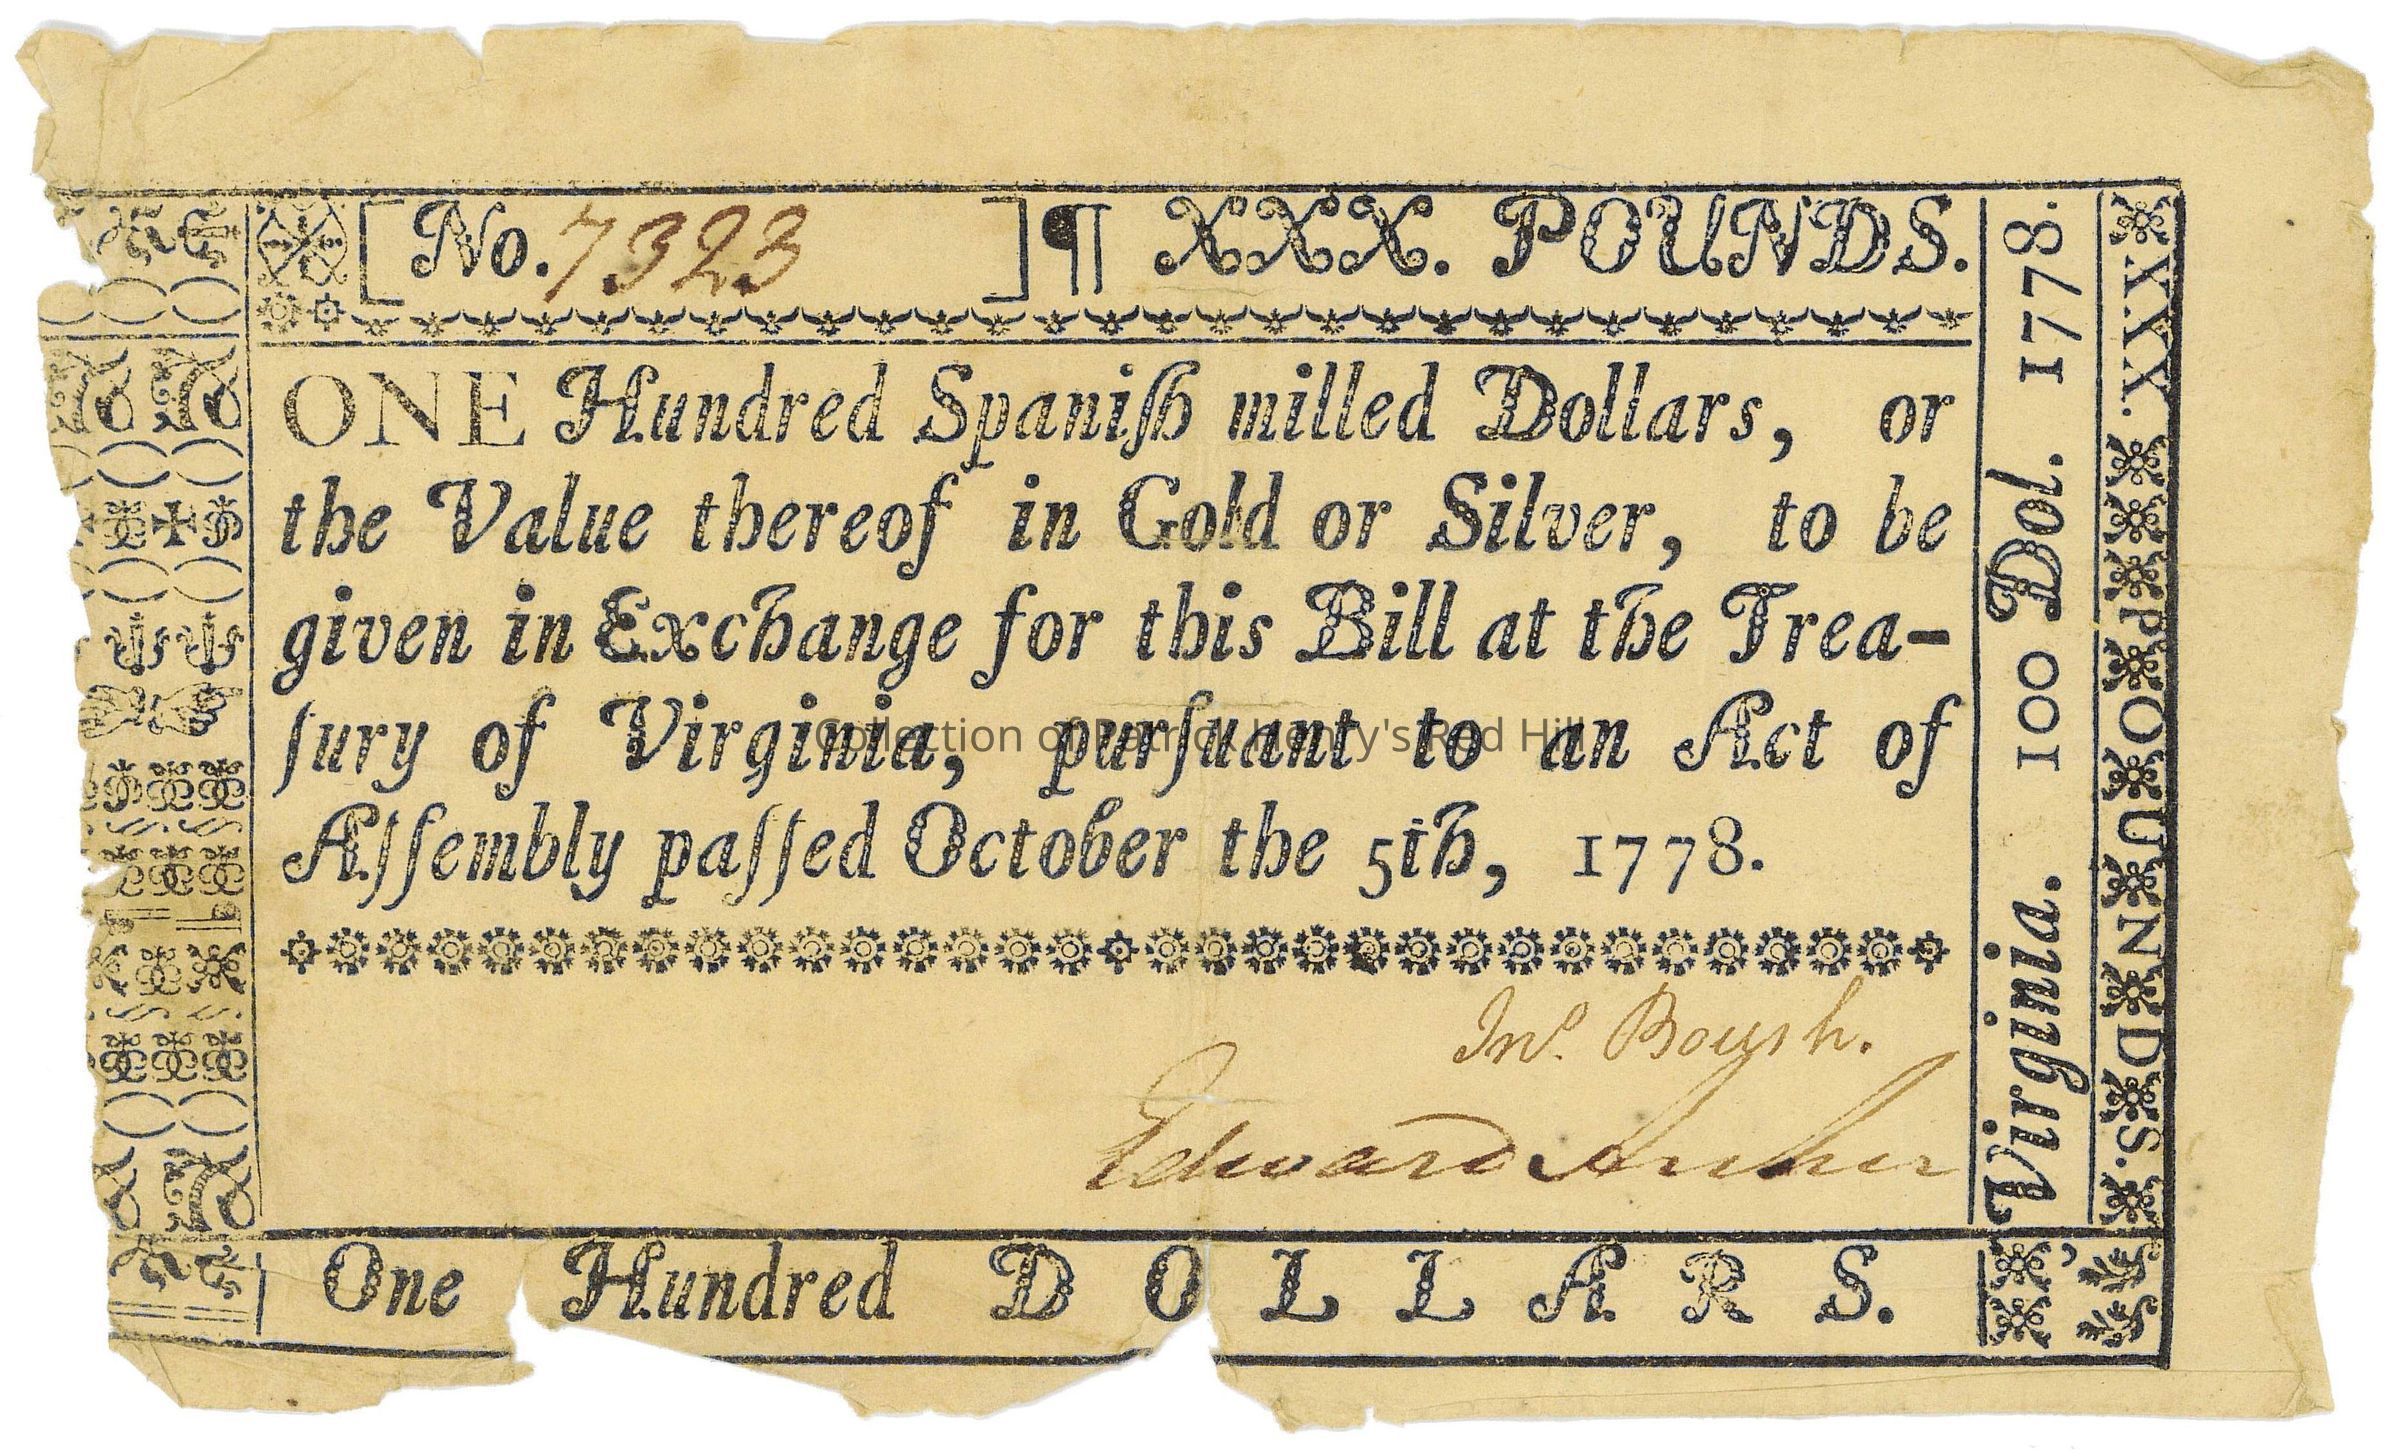 [ No. 7323 ] ¶ XXX. POUNDS.
ONE Hundred Spaniſh milled Dollars, or
the Value thereof in Gold or Silver, to be
given in Exchange for this Bill at the Trea-
ſury of Virginia, purſuant to an Act of
Aſſembly paſſed October the 5th, 1778.
Jnº. Boush.
Edward Archer
One Hundred DOLLARS.
Virginia. 100 Dol. 1778.
XXX. POUNDS.
Collection of Patrick Henry's Red Hill